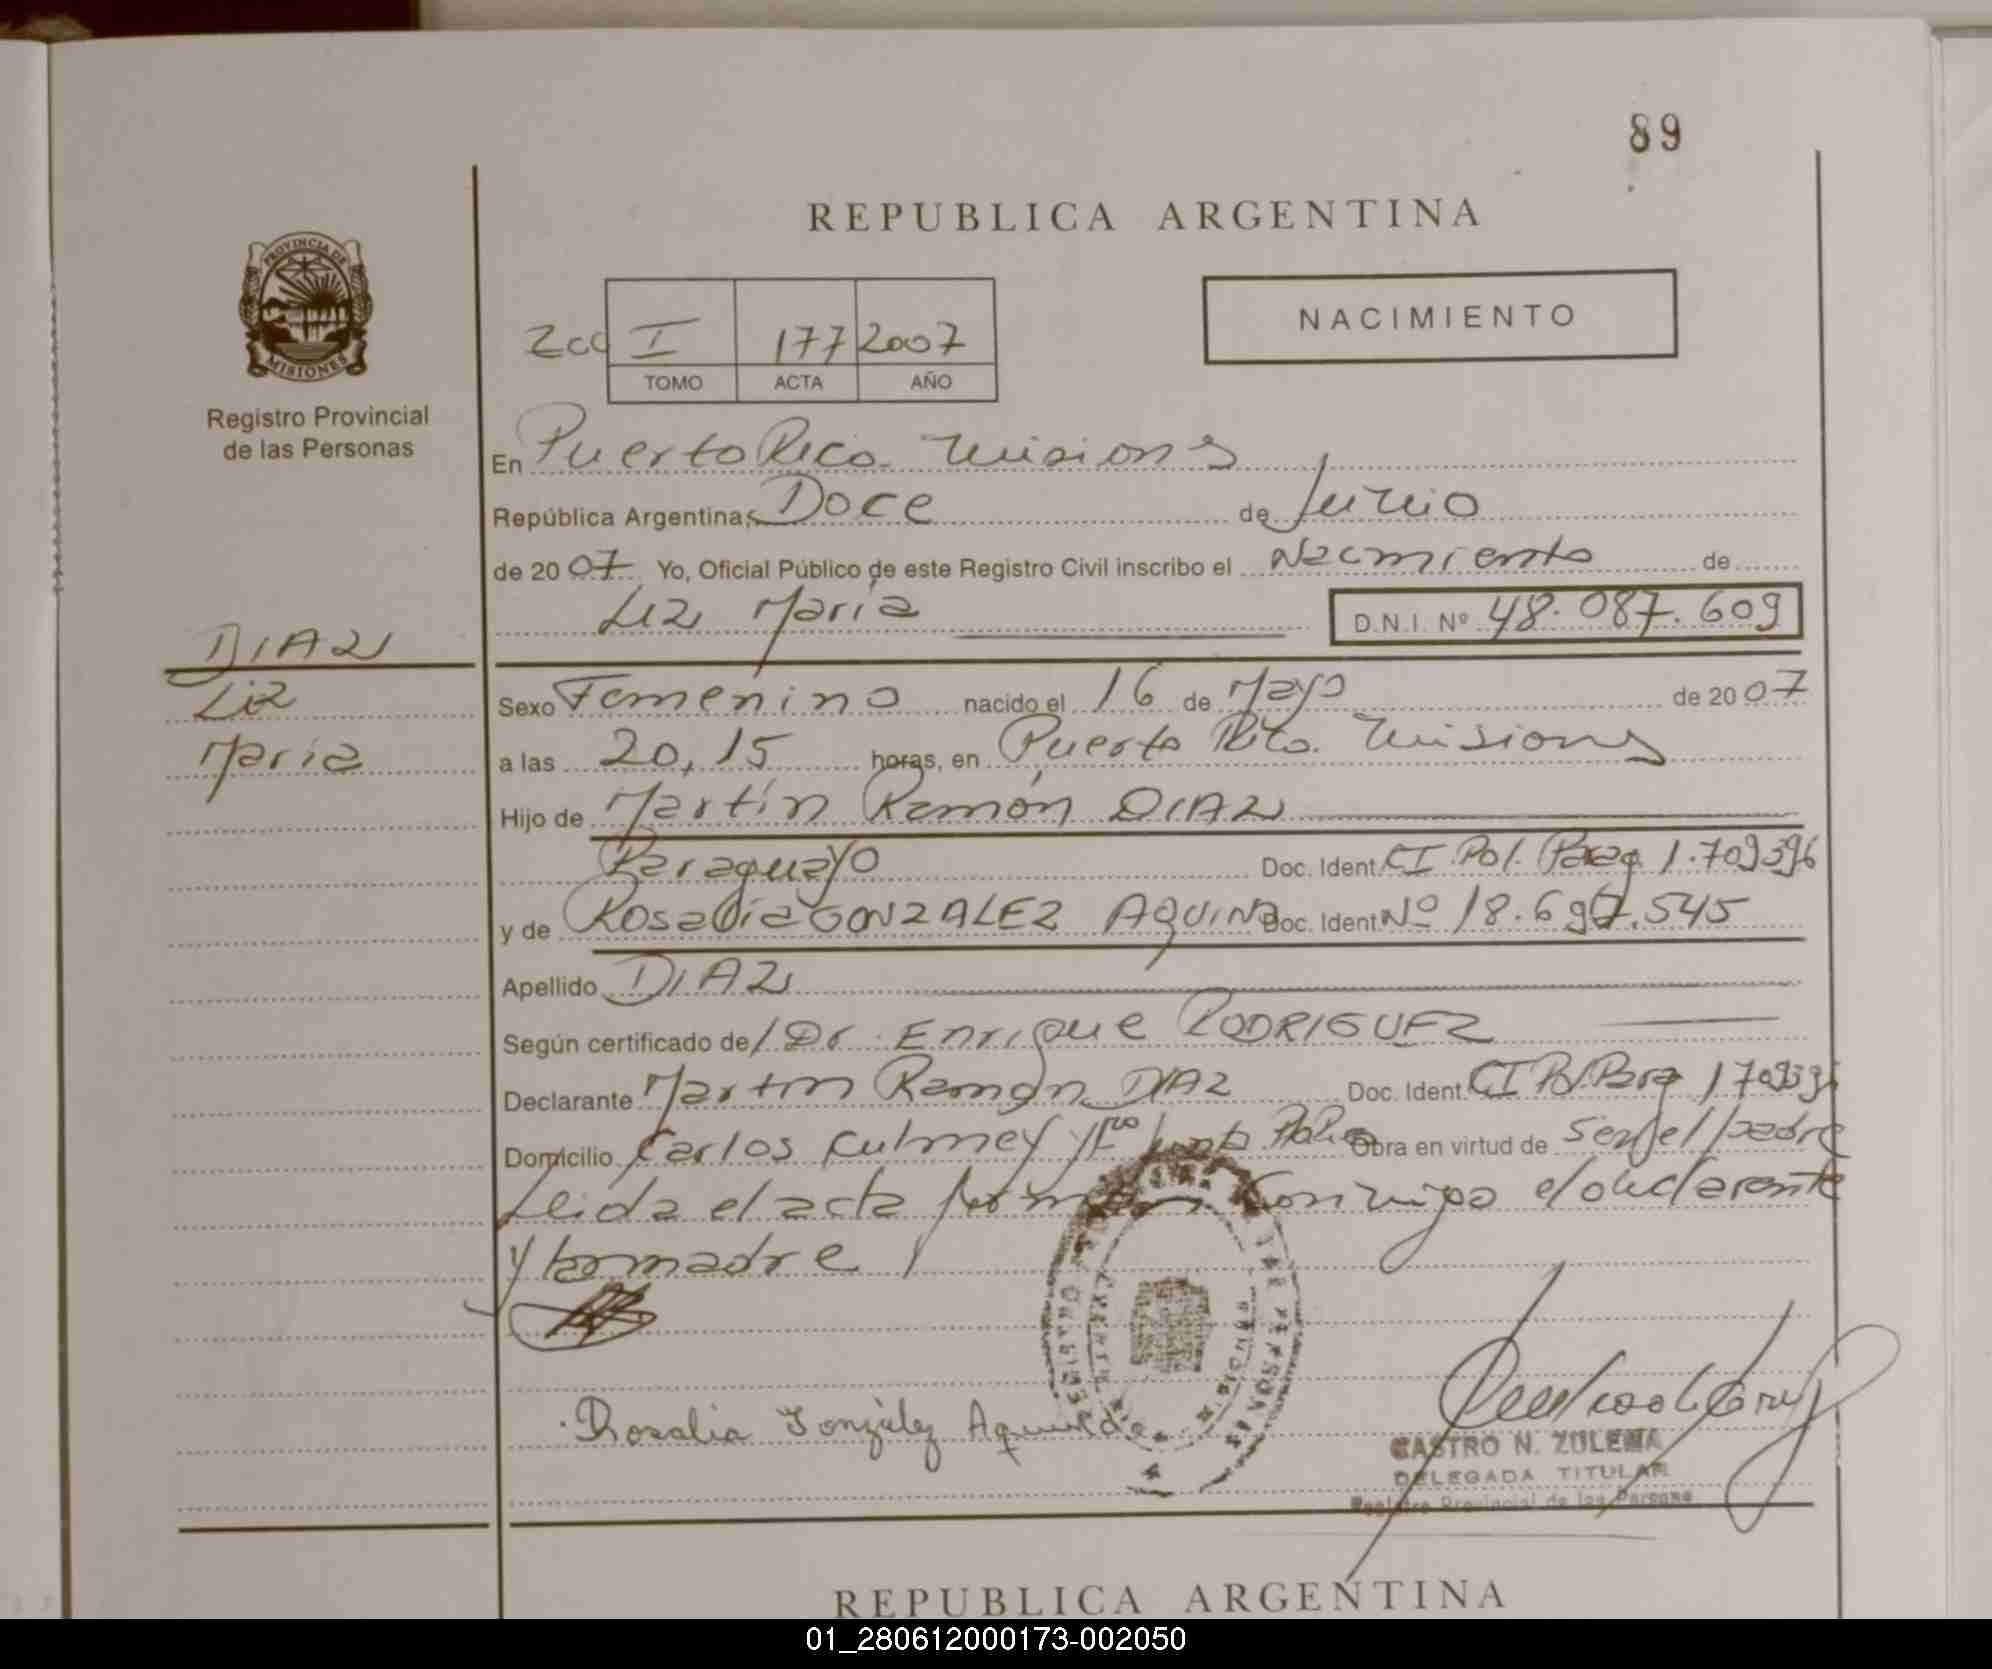 89
REPUBLICA ARGENTINA
PROVINCIA DE
MISIONES
Registro Provincial
de las Personas
NACIMIENTO
I 177 2007
TOMO ACTA AÑO
En Puerto Rico Misiones
República Argentina, Doce de Junio
de 2007 Yo, Oficial Público de este Registro Civil inscribo el Nacimiento de
Liz María D.N.I. Nº 48.087.609
DIAZ
Liz
María
Sexo Femenino nacido el 16 de Mayo de 2007
a las 20,15 horas, en Puerto Rico. Misiones
Hijo de Martín Ramón DIAZ
Paraguayo Doc. Ident. CI. Pol. Parag. 1.709396
y de Rosalia GONZALEZ AQUINO Doc. Ident. Nº 18.697.545
Apellido DIAZ
Según certificado de Dr. Enrique RODRIGUEZ
Declarante Martin Ramón DIAZ Doc. Ident. CI Pol. Parag
Domicilio Carlos Culmey y Obra en virtud de ser el padre
Leida el acta firman conmigo el declarante
y la madre
Rosalia González Aquino de
CASTRO N. ZULEMA
DELEGADA TITULAR
Registro Provincial de las Personas
REPUBLICA ARGENTINA
01_280612000173-002050